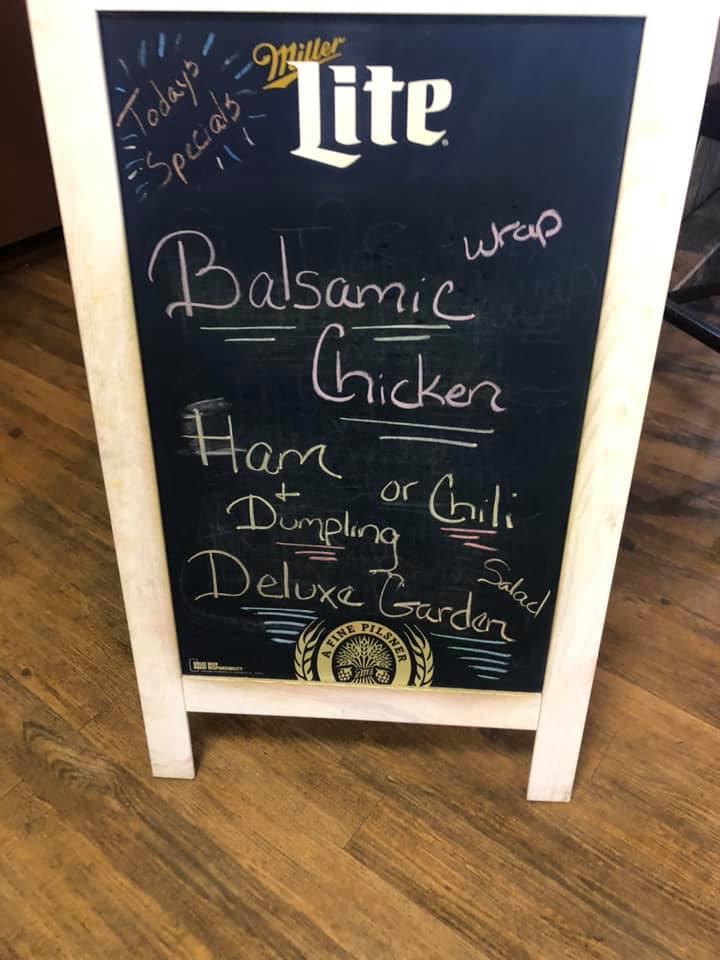 Todays
Specials
Miller
Lite
Wrap
Balsamic
Chicken
Ham
+
Dumpling
or Chili
Deluxe Garden
Salad
A FINE PILSNER